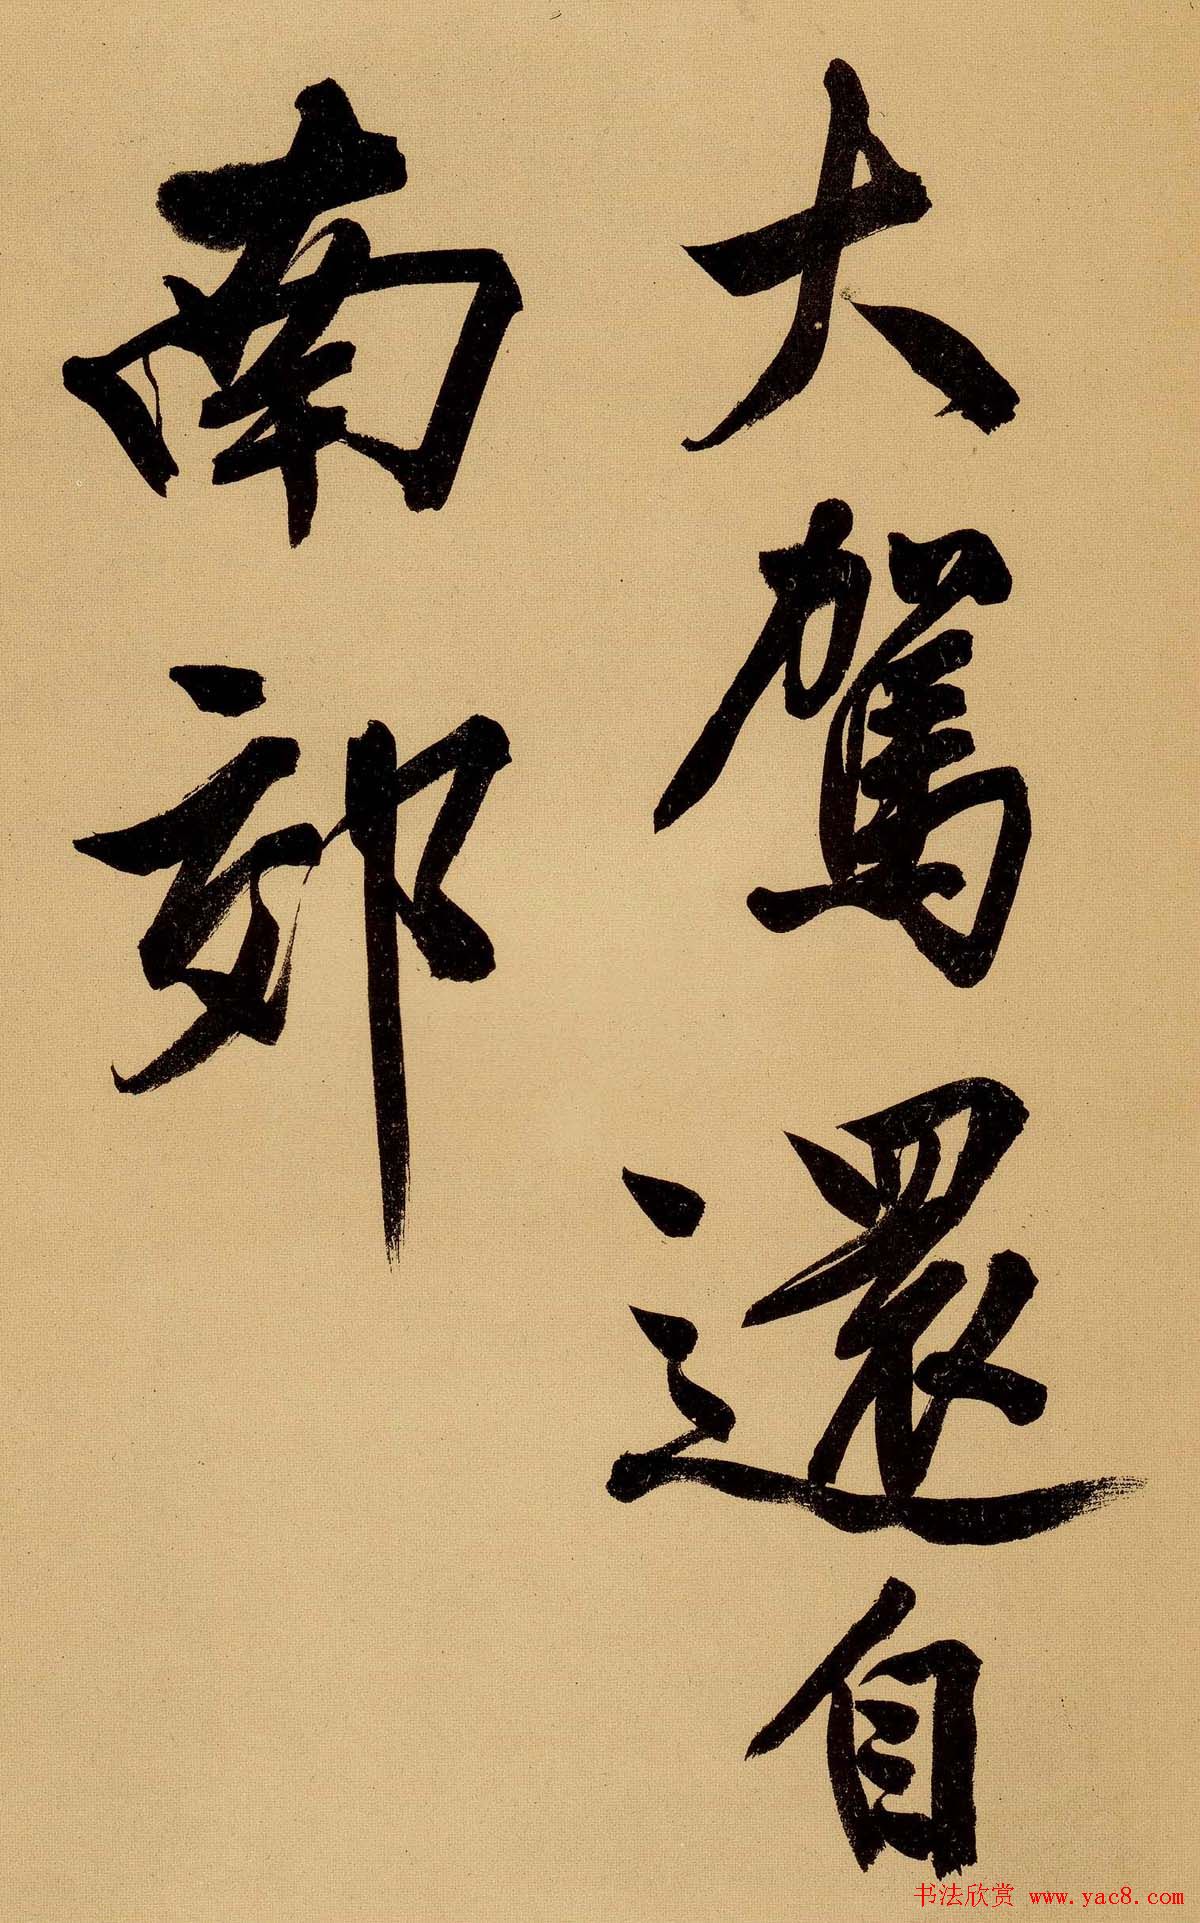 大駕還自
南郊
书法欣赏 www.yac8.com